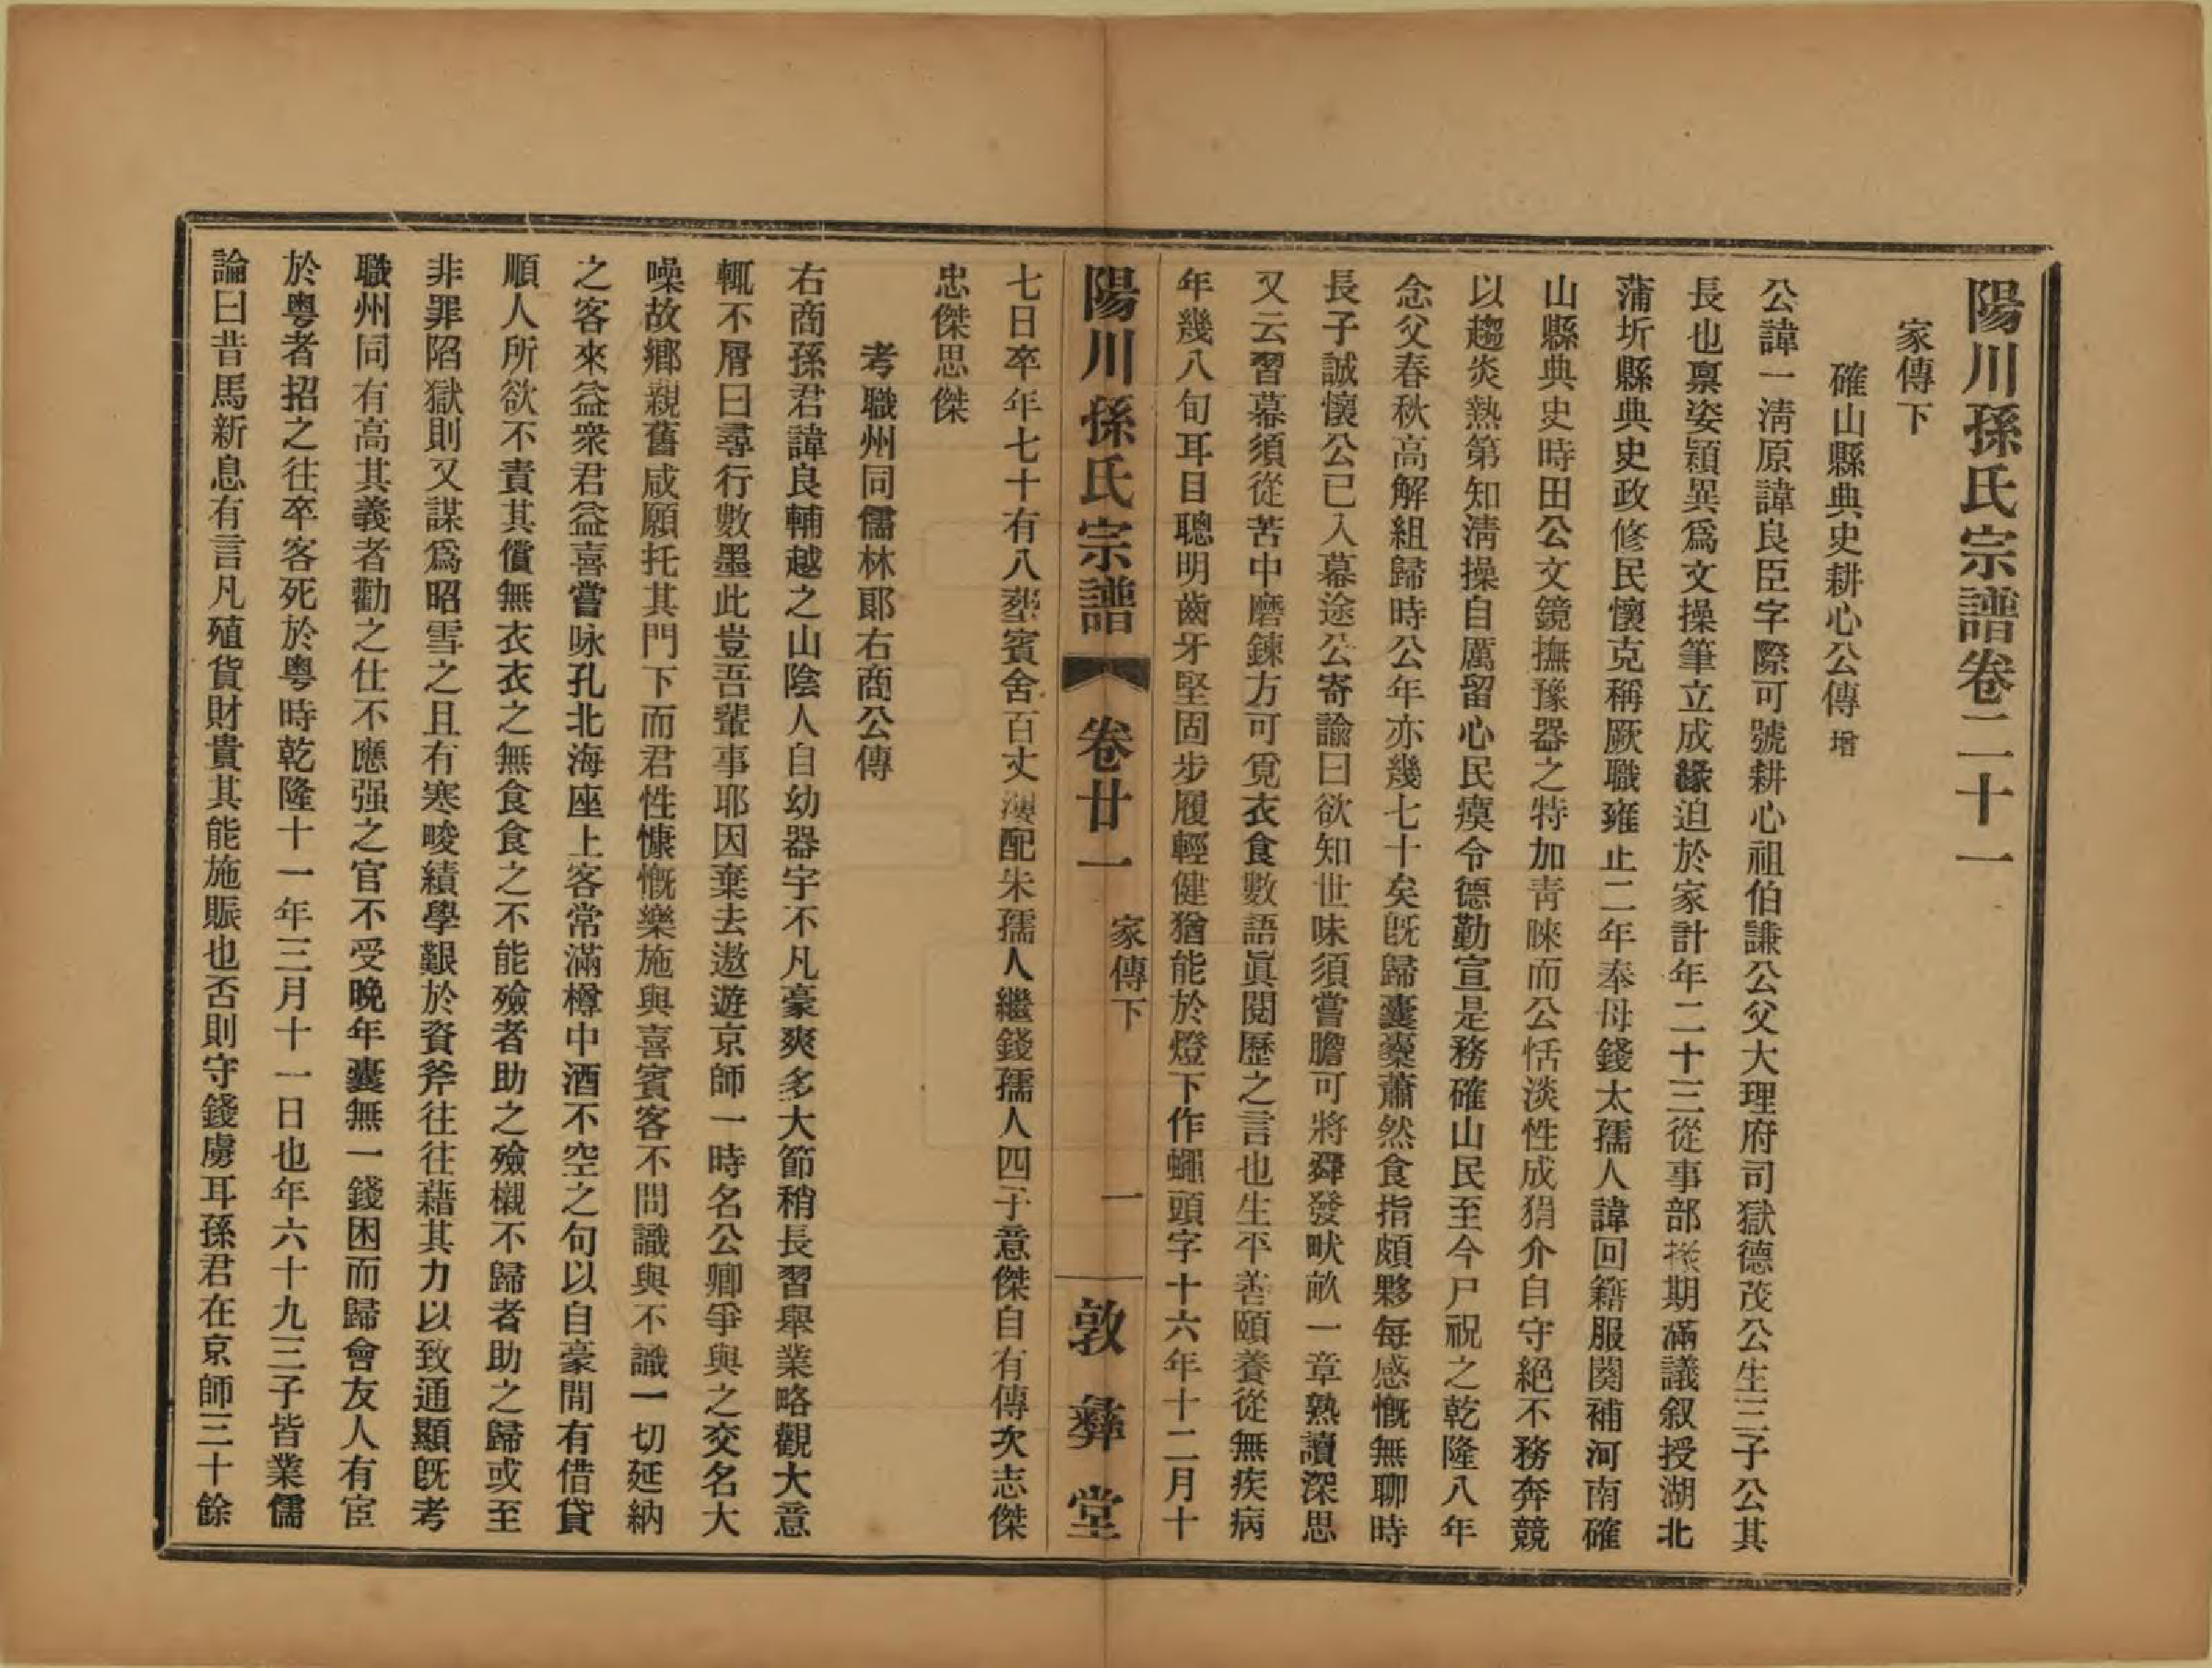 陽川孫氏宗譜卷二十一
家傳下
確山縣典史耕心公傳增
公諱一淸原諱良臣字際可號耕心祖伯謙公父大理府司獄德茂公生三子公其
長也禀姿穎異爲文操筆立成緣迫於家計年二十三從事部掾期滿議叙授湖北
蒲圻縣典史政修民懷克稱厥職雍正二年奉母錢太孺人諱回籍服闋補河南確
山縣典史時田公文鏡撫豫器之特加靑睞而公恬淡性成狷介自守絕不務奔競
以趨炎熱第知淸操自厲留心民瘼令德勤宣是務確山民至今尸祝之乾隆八年
念父春秋高解組歸時公年亦幾七十矣旣歸囊橐蕭然食指頗夥每感慨無聊時
長子誠懷公已入幕途公寄諭曰欲知世味須嘗膽可將舜發畎畝一章熟讀深思
又云習幕須從苦中磨鍊方可覓衣食數語眞閱歷之言也生平善頤養從無疾病
年幾八旬耳目聰明齒牙堅固步履輕健猶能於燈下作蠅頭字十六年十二月十
陽川孫氏宗譜 卷廿一 家傳下 一 敦彝堂
七日卒年七十有八葬賓舍百丈漊配朱孺人繼錢孺人四子意傑自有傳次志傑
忠傑思傑
考職州同儒林郞右商公傳
右商孫君諱良輔越之山陰人自幼器宇不凡豪爽多大節稍長習舉業略觀大意
輒不屑曰尋行數墨此豈吾輩事耶因棄去遨遊京師一時名公卿爭與之交名大
噪故鄉親舊咸願托其門下而君性慷慨樂施與喜賓客不問識與不識一切延納
之客來益衆君益喜嘗咏孔北海座上客常滿樽中酒不空之句以自豪間有借貸
順人所欲不責其償無衣衣之無食食之不能殮者助之殮櫬不歸者助之歸或至
非罪陷獄則又謀爲昭雪之且有寒畯績學艱於資斧往往藉其力以致通顯旣考
職州同有高其義者勸之仕不應强之官不受晚年囊無一錢困而歸會友人有宦
於粤者招之往卒客死於粤時乾隆十一年三月十一日也年六十九三子皆業儒
論曰昔馬新息有言凡殖貨財貴其能施賑也否則守錢虜耳孫君在京師三十餘